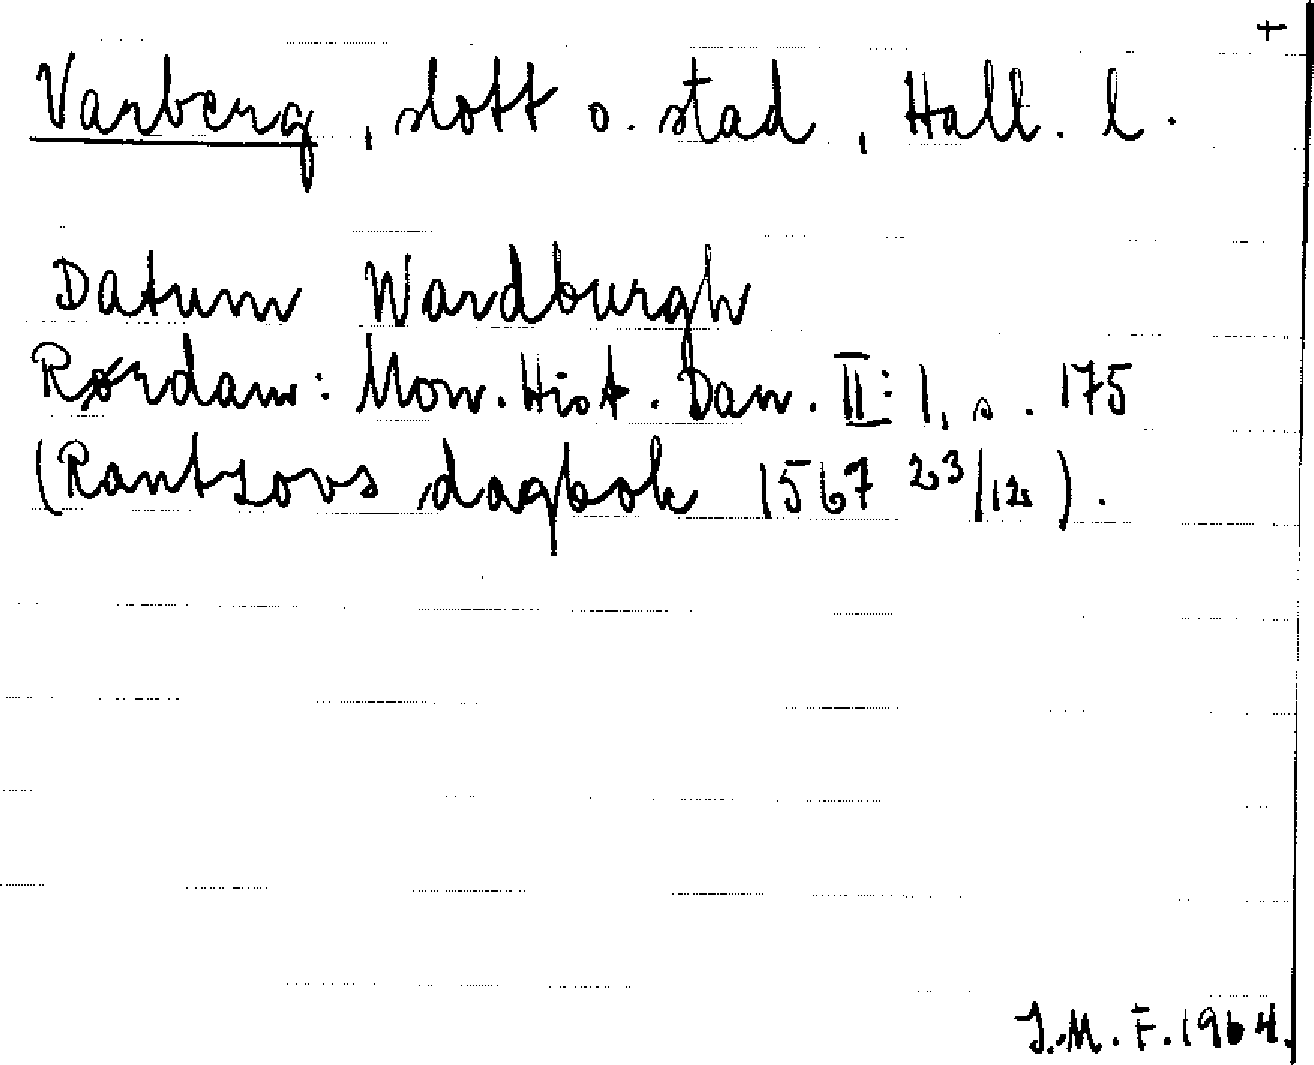 +
Varberg, slott o. stad, Hall. l.
Datum Wardburgh
Rørdam: Mon. Hist. Dan. II: 1, s. 175
(Rantzovs dagbok 1567 23/12).
J.M.F. 1964.